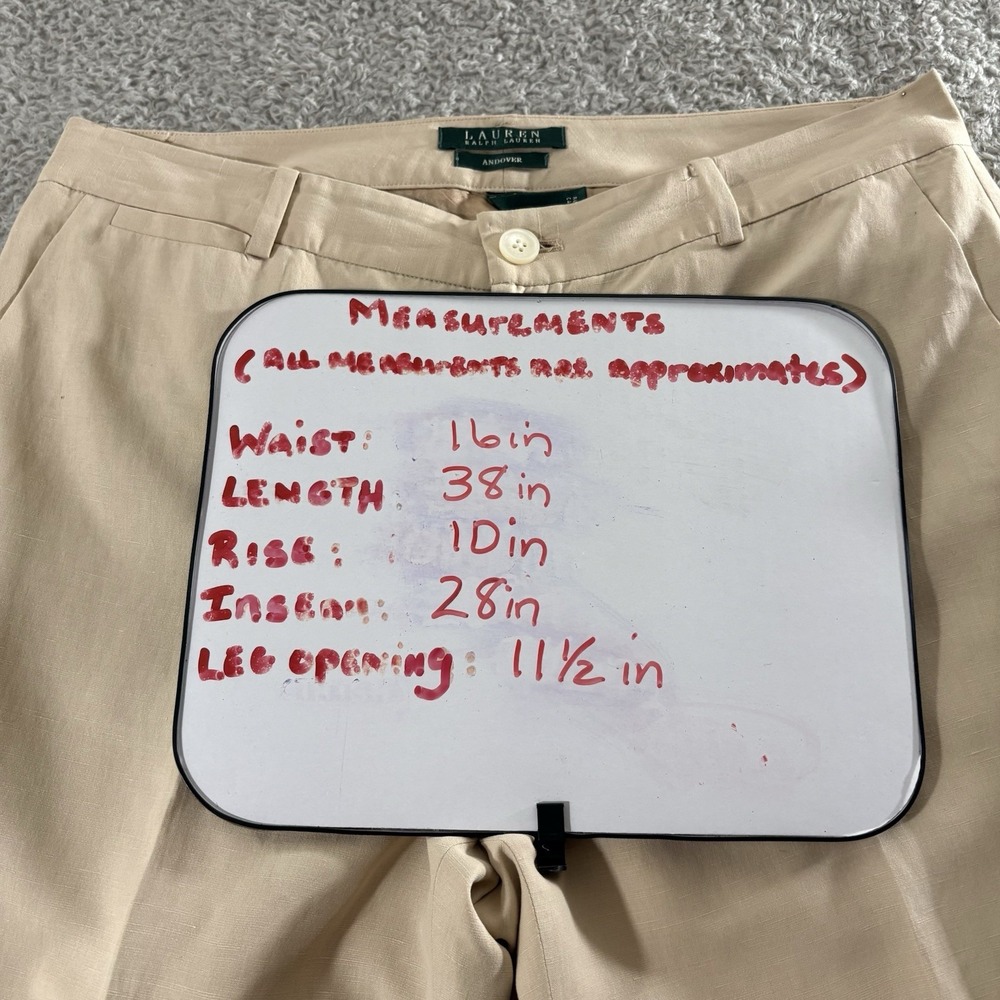 LAUREN
RALPH LAUREN
ANDOVER
MEASUrEMENTS
(ALL MEASUrEMENTS ARE approximates)
WaiST: 16in
LENGTH 38in
RISE: 10in
InSEAM: 28in
LEG OPENING: 11 1/2 in